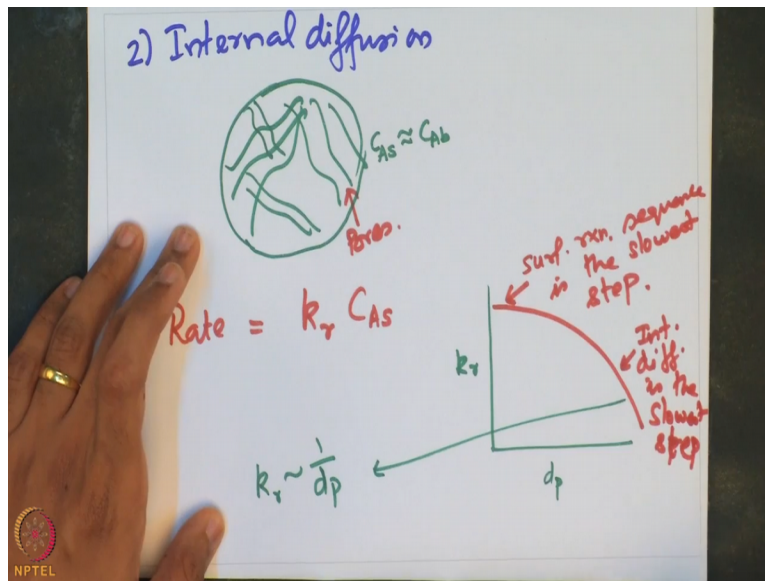 2) Internal diffusion
C_As ≈ C_Ab
Pores.
surf. rxn. sequence
is the slowest
step.
Rate = k_r C_As
Int.
diff.
is the
slowest
step
k_r
d_p
k_r ~ 1/d_p
NPTEL